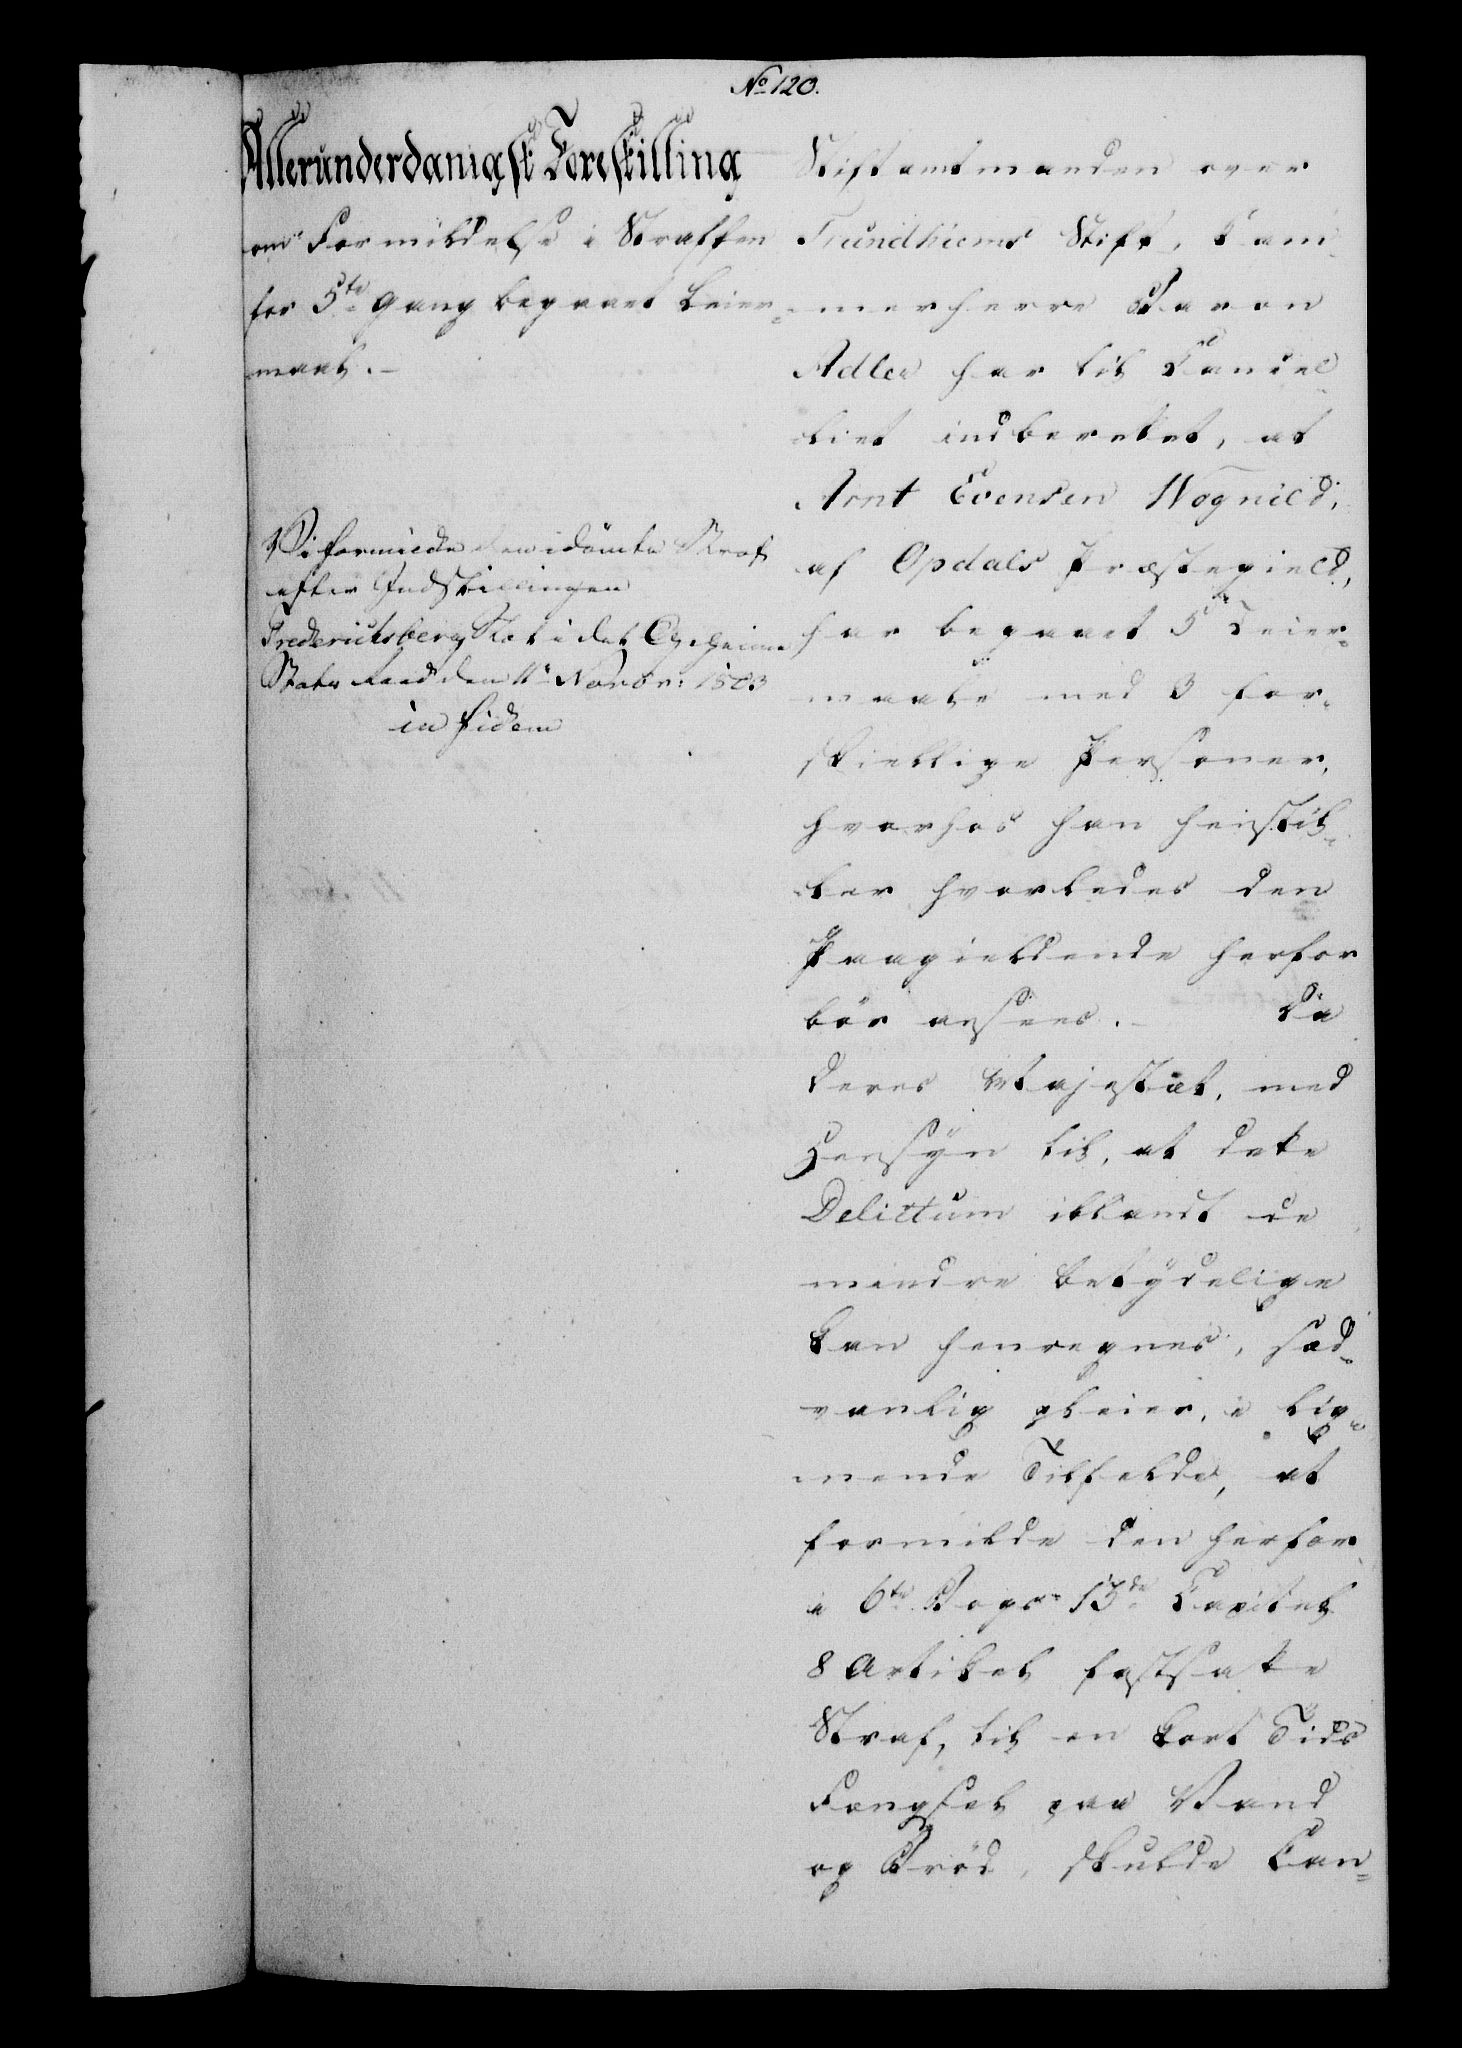 No 120.
Allerunderdanigst Forestilling
om Formildelse i Straffen
for 5te Gang begaaet Leier-
maal. -
Vi formilde den idömte Straf
efter Indstillingen
Frederichsberg Slot i det Geheime
Stats Raad den 11te Novbr: 1803
in fidem
Stiftamtmanden over
Trundhiems Stift, Kam-
merherre Baron
Adler har til Cancel-
liet indberettet, at
Arnt Evensen Wognild,
af Opdals Præstegield,
har begaaet 5 Leier-
maale med 3 for-
skiellige Personer,
hvorhos han henstil-
ler hvorledes den
Paagieldende herfor
bör ansees. - Da
Deres Majestæt, med
Hensÿn til, at dette
Delictum iblandt de
mindre betÿdelige
kan henregnes, sæd-
vanlig pleier, i lig-
nende Tilfælde, at
formilde den herfor
i 6te Bogs 13de Capitel
8 Artikel fastsatte
Straf, til en kort Tids
Fængsel paa Vand
og Bröd, skulde Can-